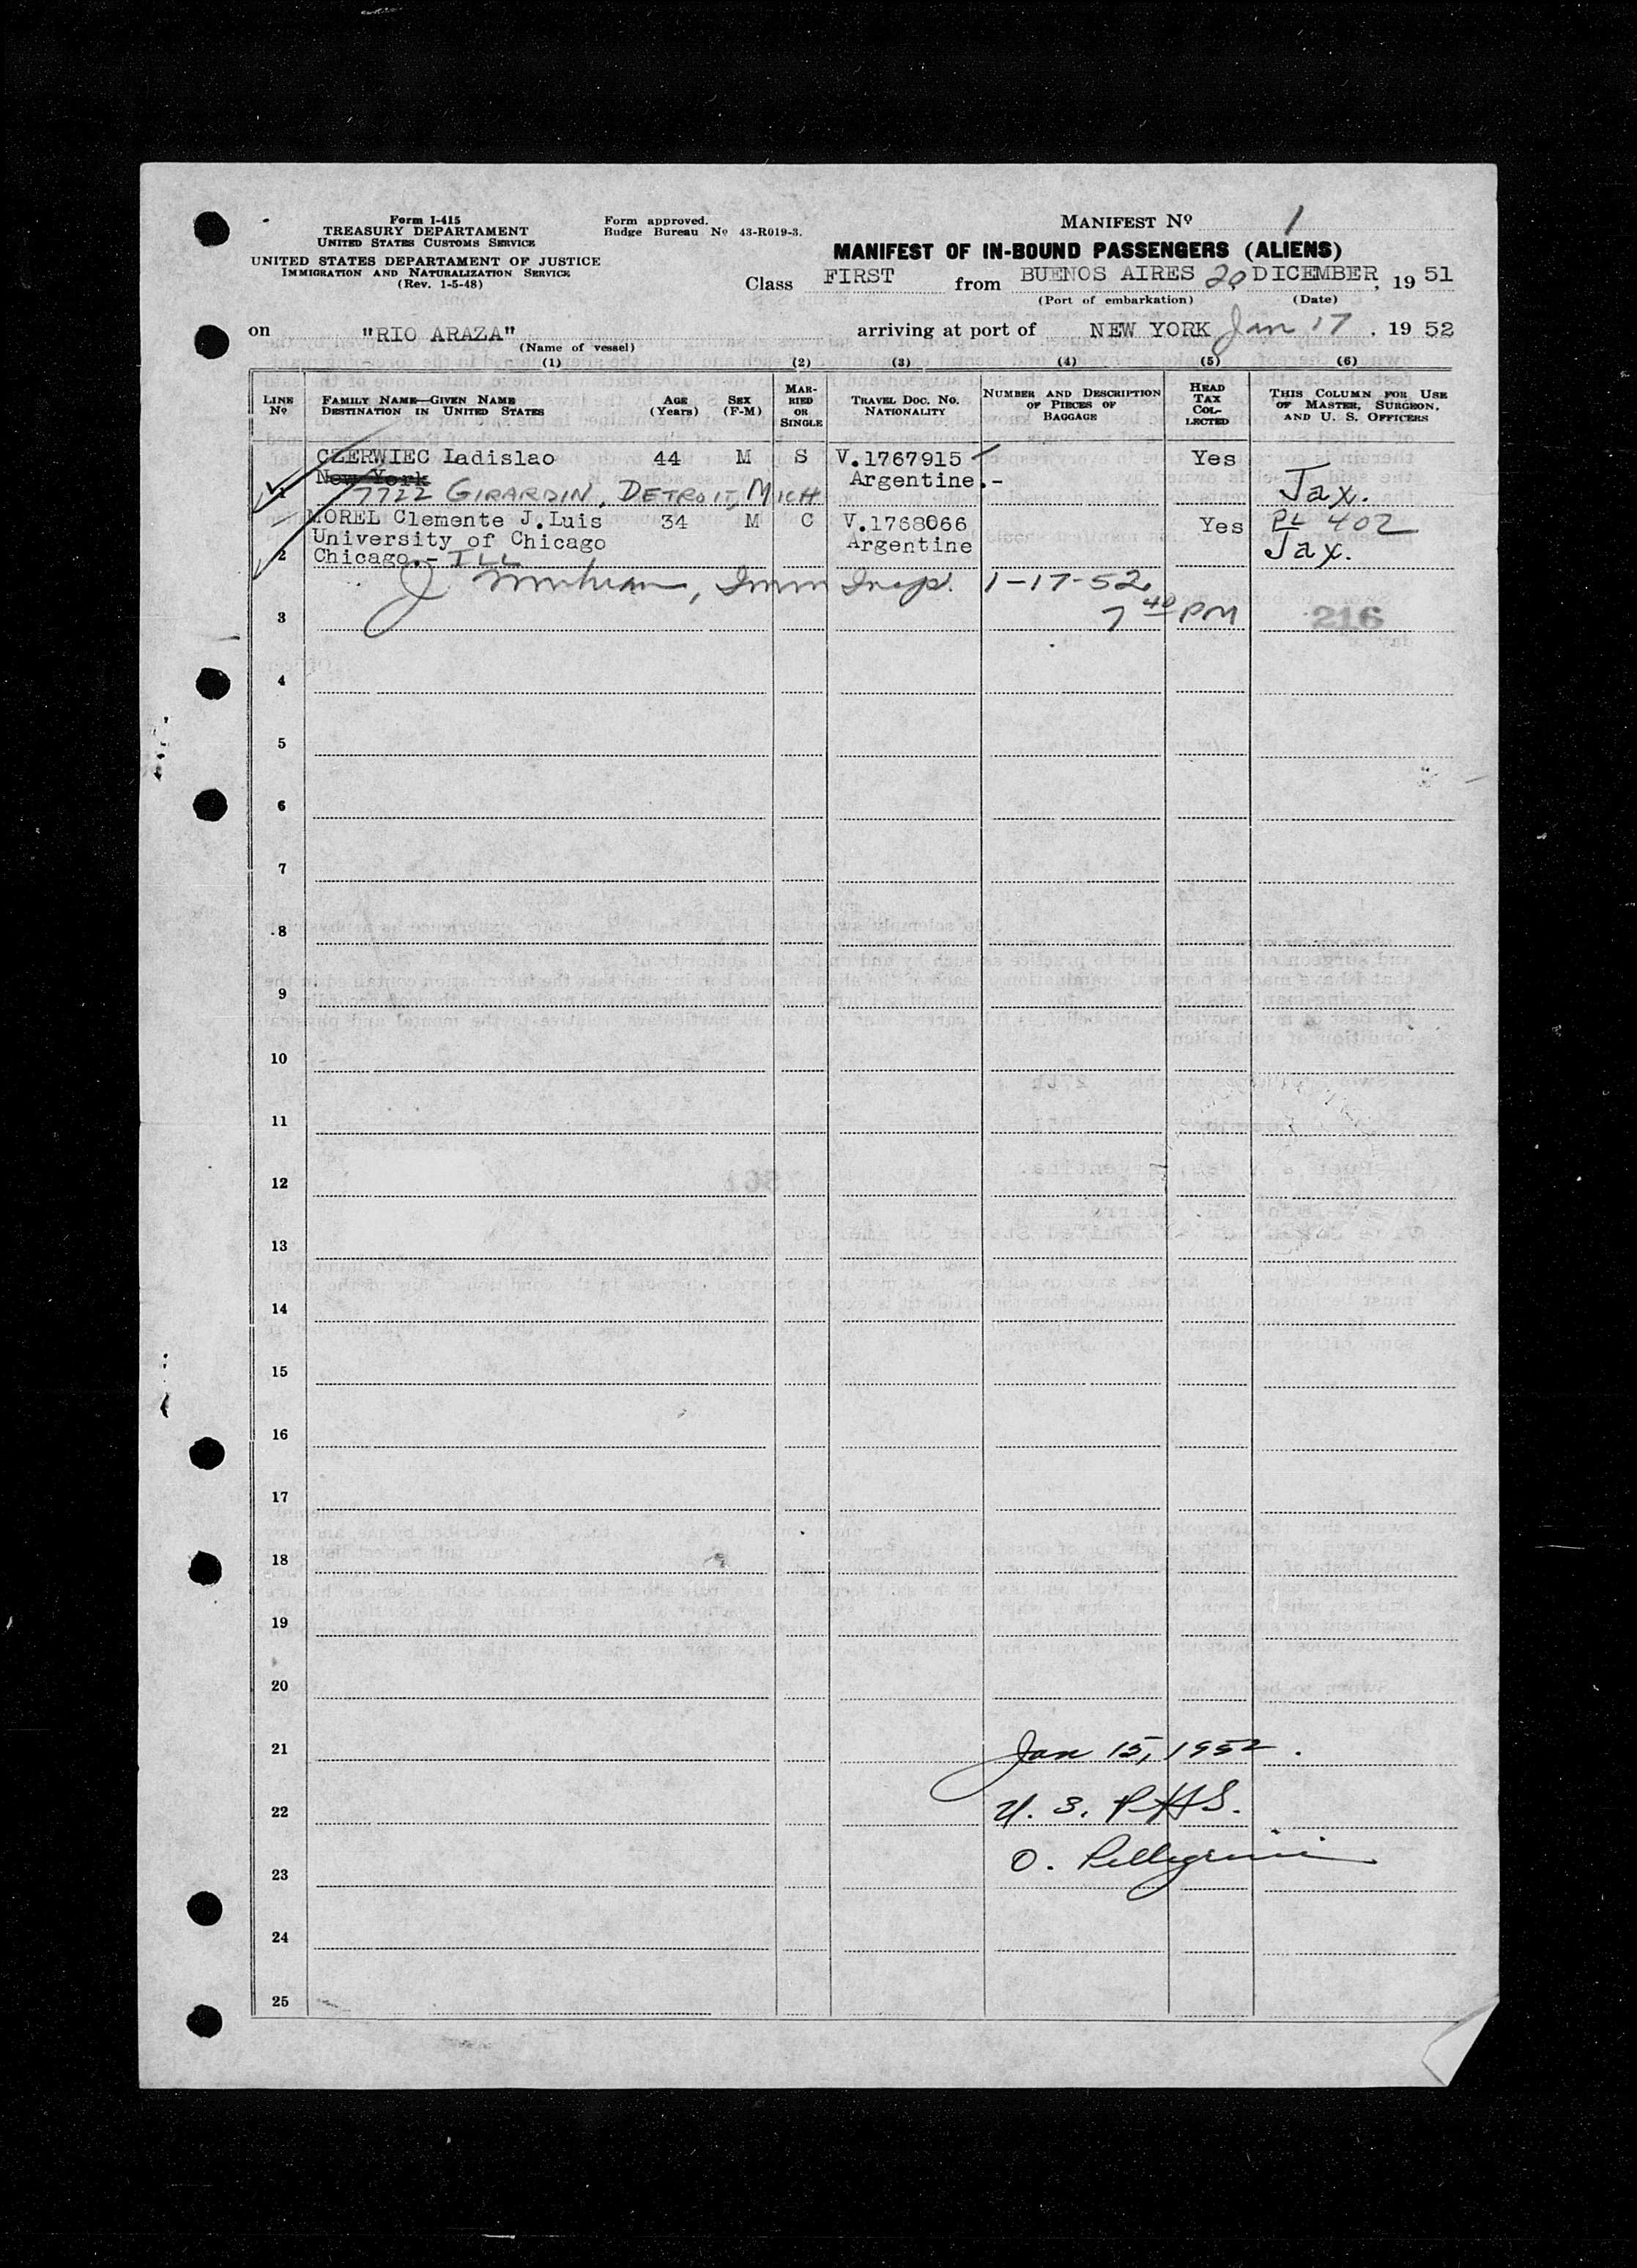 Form I-415
TREASURY DEPARTAMENT
UNITED STATES CUSTOMS SERVICE
UNITED STATES DEPARTAMENT OF JUSTICE
IMMIGRATION AND NATURALIZATION SERVICE
(Rev. 1-5-48)
Form approved.
Budge Bureau Nº 43-R019-3.
MANIFEST Nº 1
MANIFEST OF IN-BOUND PASSENGERS (ALIENS)
Class FIRST from BUENOS AIRES 20 DICEMBER, 19 51
(Port of embarkation) (Date)
on "RIO ARAZA" arriving at port of NEW YORK Jan 17, 19 52
(Name of vessel)
(1) (2) (3) (4) (5) (6)
LINE Nº
FAMILY NAME—GIVEN NAME
DESTINATION IN UNITED STATES
AGE (Years)
SEX (F-M)
MARRIED OR SINGLE
TRAVEL DOC. NO. NATIONALITY
NUMBER AND DESCRIPTION OF PIECES OF BAGGAGE
HEAD TAX COLLECTED
THIS COLUMN FOR USE OF MASTER, SURGEON, AND U. S. OFFICERS
CZERWIEC Ladislao 44 M S V.1767915 Yes
New York Argentine.-
1 7722 GIRARDIN, DETROIT, MICH Jax.
MOREL Clemente J.Luis 34 M C V.1768066 Yes PL 402
University of Chicago Argentine Jax.
2 Chicago.- ILL
J. Imm Insp. 1-17-52
3 7 40 PM 216
4
5
6
7
8
9
10
11
12
13
14
15
16
17
18
19
20
21 Jan 15, 1952.
22 U. S. PHS.
23 O. Pellegrini
24
25